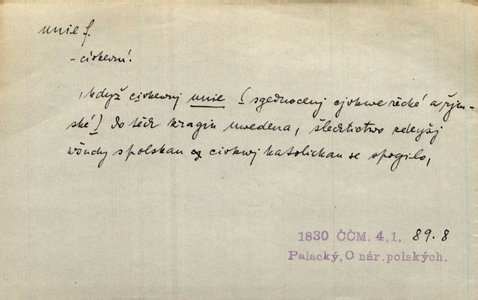 unie f.
- církevní.
když církewnj unie (sgednocenj cjrkwe řecké a řjm-
ské) do těch kragin uwedena, šlechtictwo nelepšj
wšudy s polskau a cirkwj katolickau se spogilo,
1830 ČČM. 4,1, 89. 8
Palacký, O nár. polských.